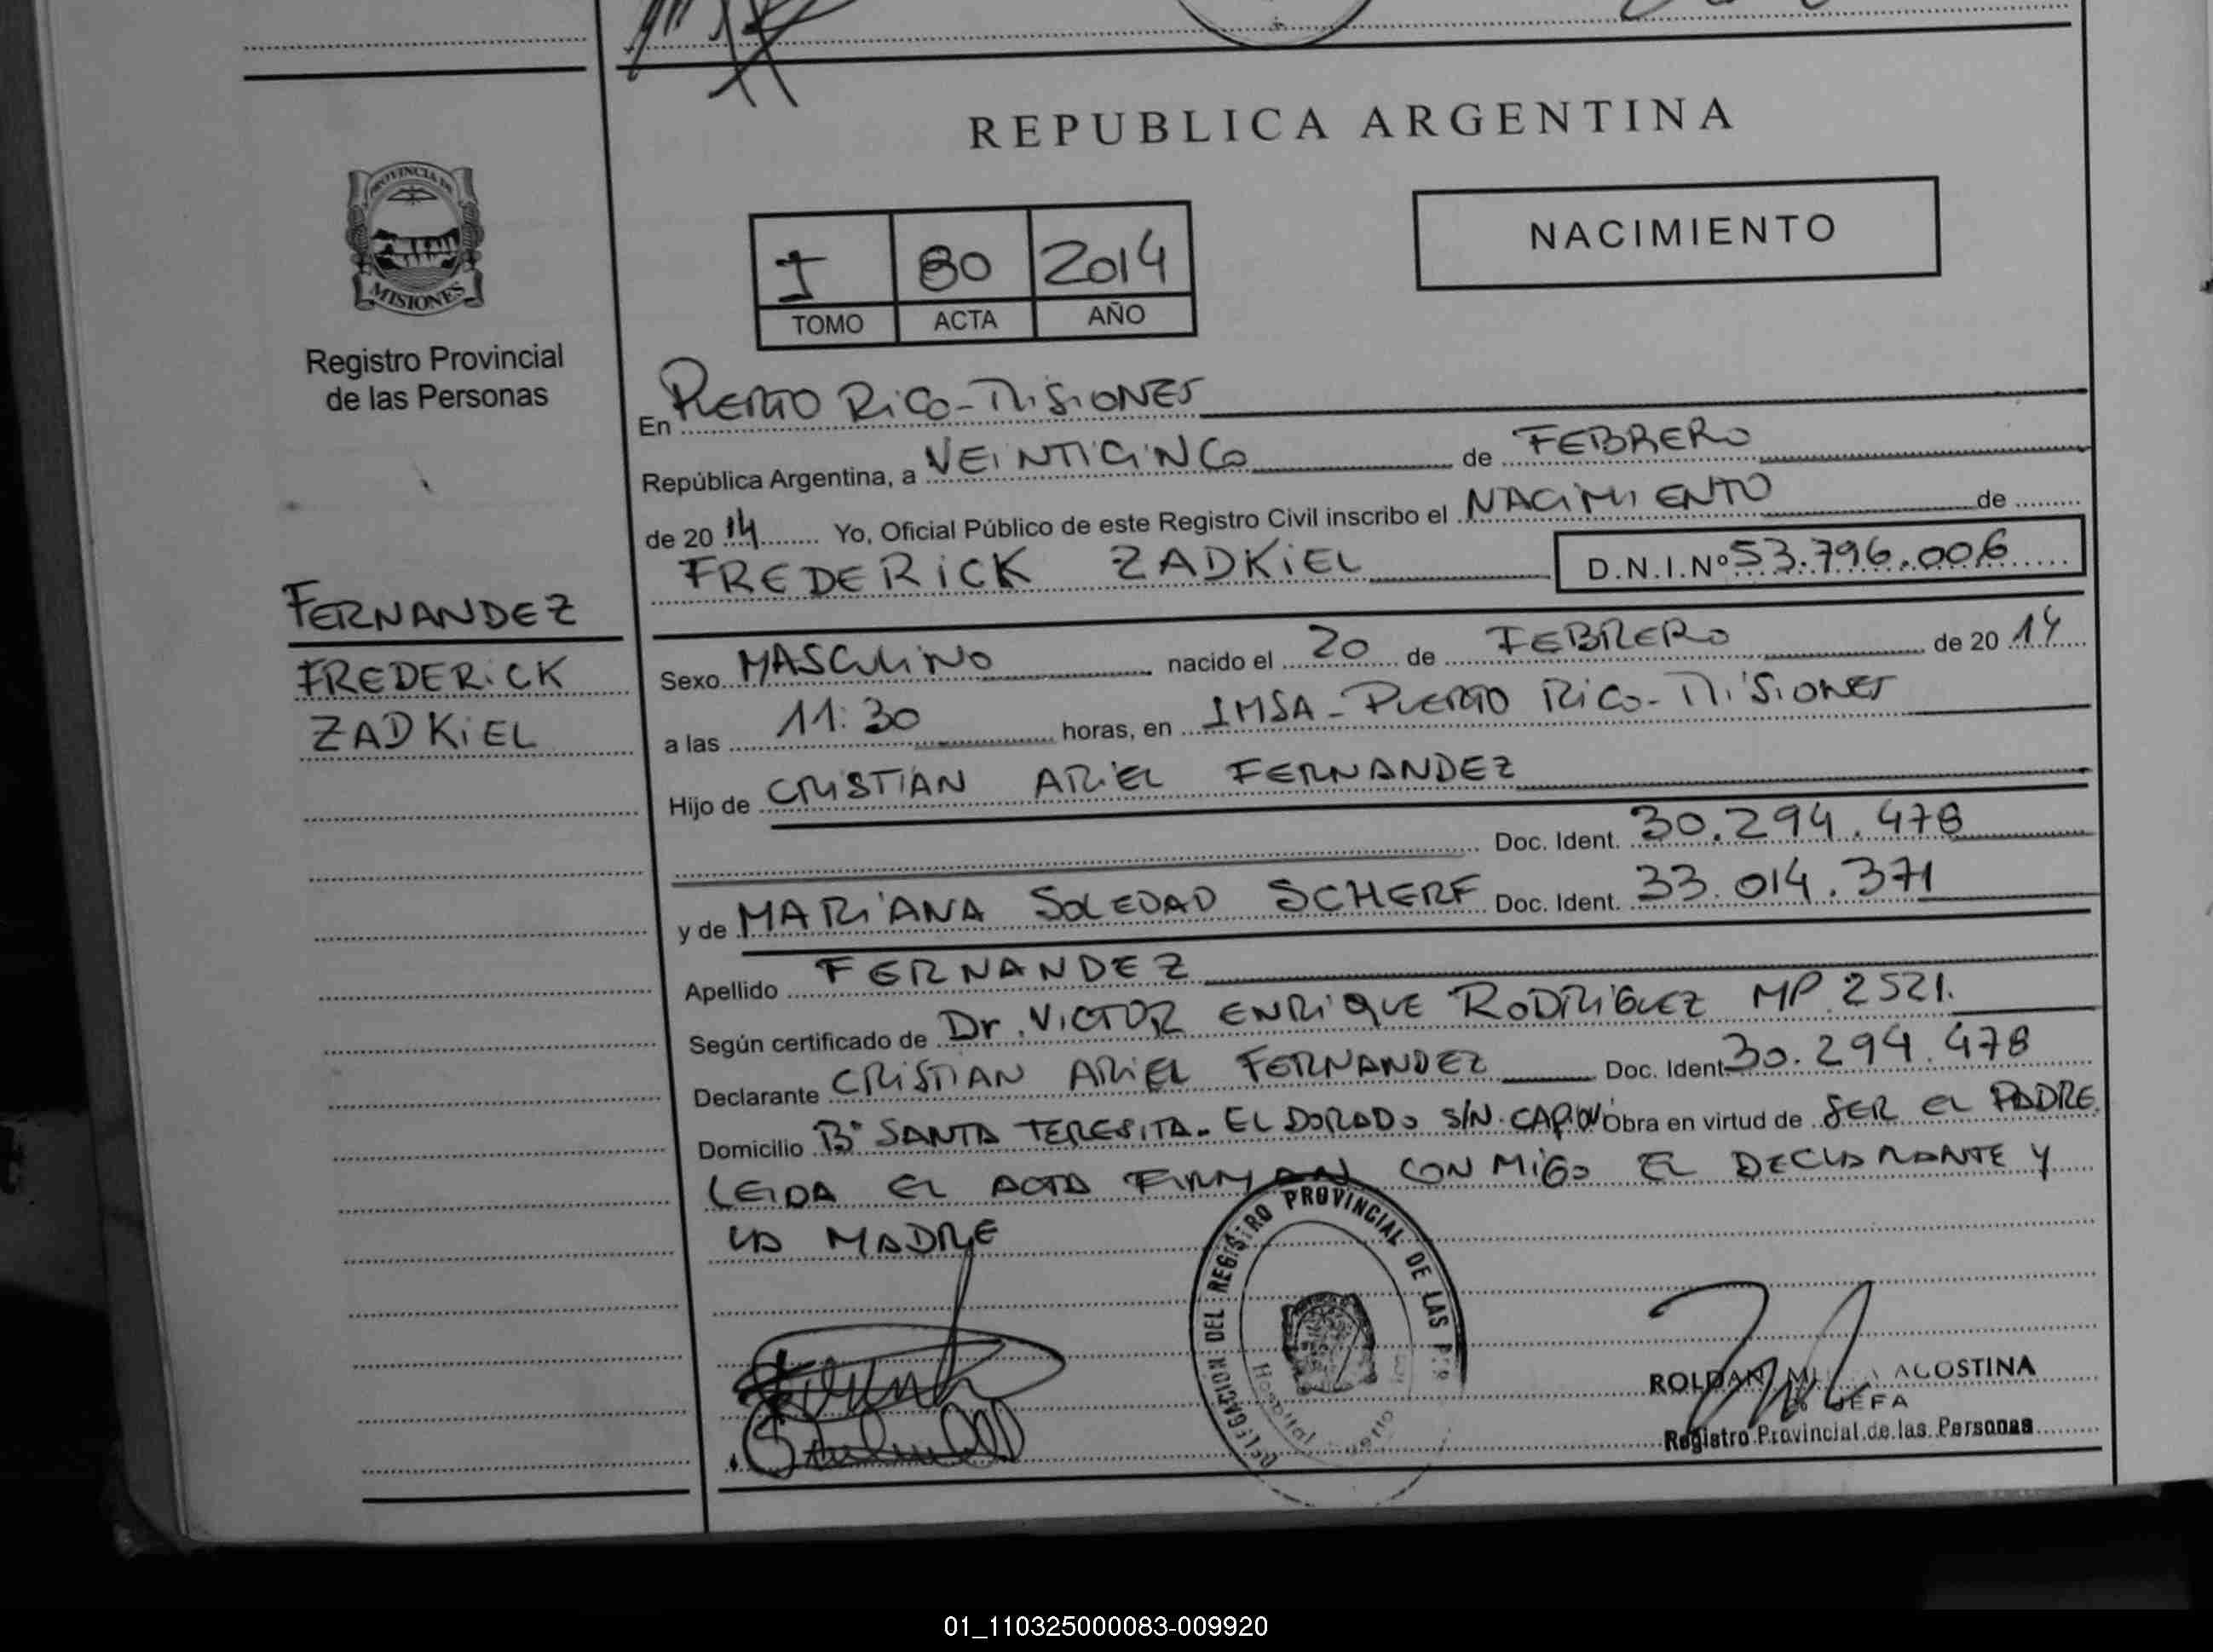 REPUBLICA ARGENTINA
PROVINCIA DE
MISIONES
Registro Provincial
de las Personas
NACIMIENTO
I 80 2014
TOMO ACTA AÑO
En PUERTO RICO-MISIONES
República Argentina, a VEINTICINCO de FEBRERO
de 2014 Yo, Oficial Público de este Registro Civil inscribo el NACIMIENTO de
FREDERICK ZADKIEL D.N.I.Nº 53.796.006
FERNANDEZ
FREDERICK
ZADKIEL
Sexo MASCULINO nacido el 20 de FEBRERO de 2014
a las 11:30 horas, en IMSA - PUERTO RICO - MISIONES
Hijo de CRISTIAN ARIEL FERNANDEZ
Doc. Ident. 30.294.478
y de MARIANA SOLEDAD SCHERF Doc. Ident. 33.014.371
Apellido FERNANDEZ
Según certificado de Dr. VICTOR ENRIQUE RODRIGUEZ MP 2521.
Declarante CRISTIAN ARIEL FERNANDEZ Doc. Ident. 30.294.478
Domicilio Bº SANTA TERESITA - ELDORADO S/N. Obra en virtud de SER EL PADRE.
LEIDA EL ACTA FIRMAN CONMIGO EL DECLARANTE Y
LA MADRE
DELEGACION DEL REGISTRO PROVINCIAL DE LAS
Hospital
ROLDAN AGOSTINA
JEFA
Registro Provincial de las Personas
01_110325000083-009920